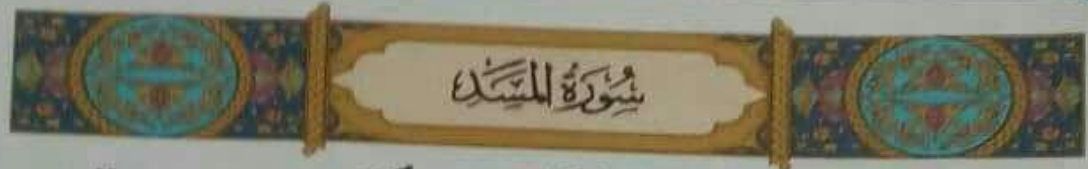 سُورَةُ المَسَدِ